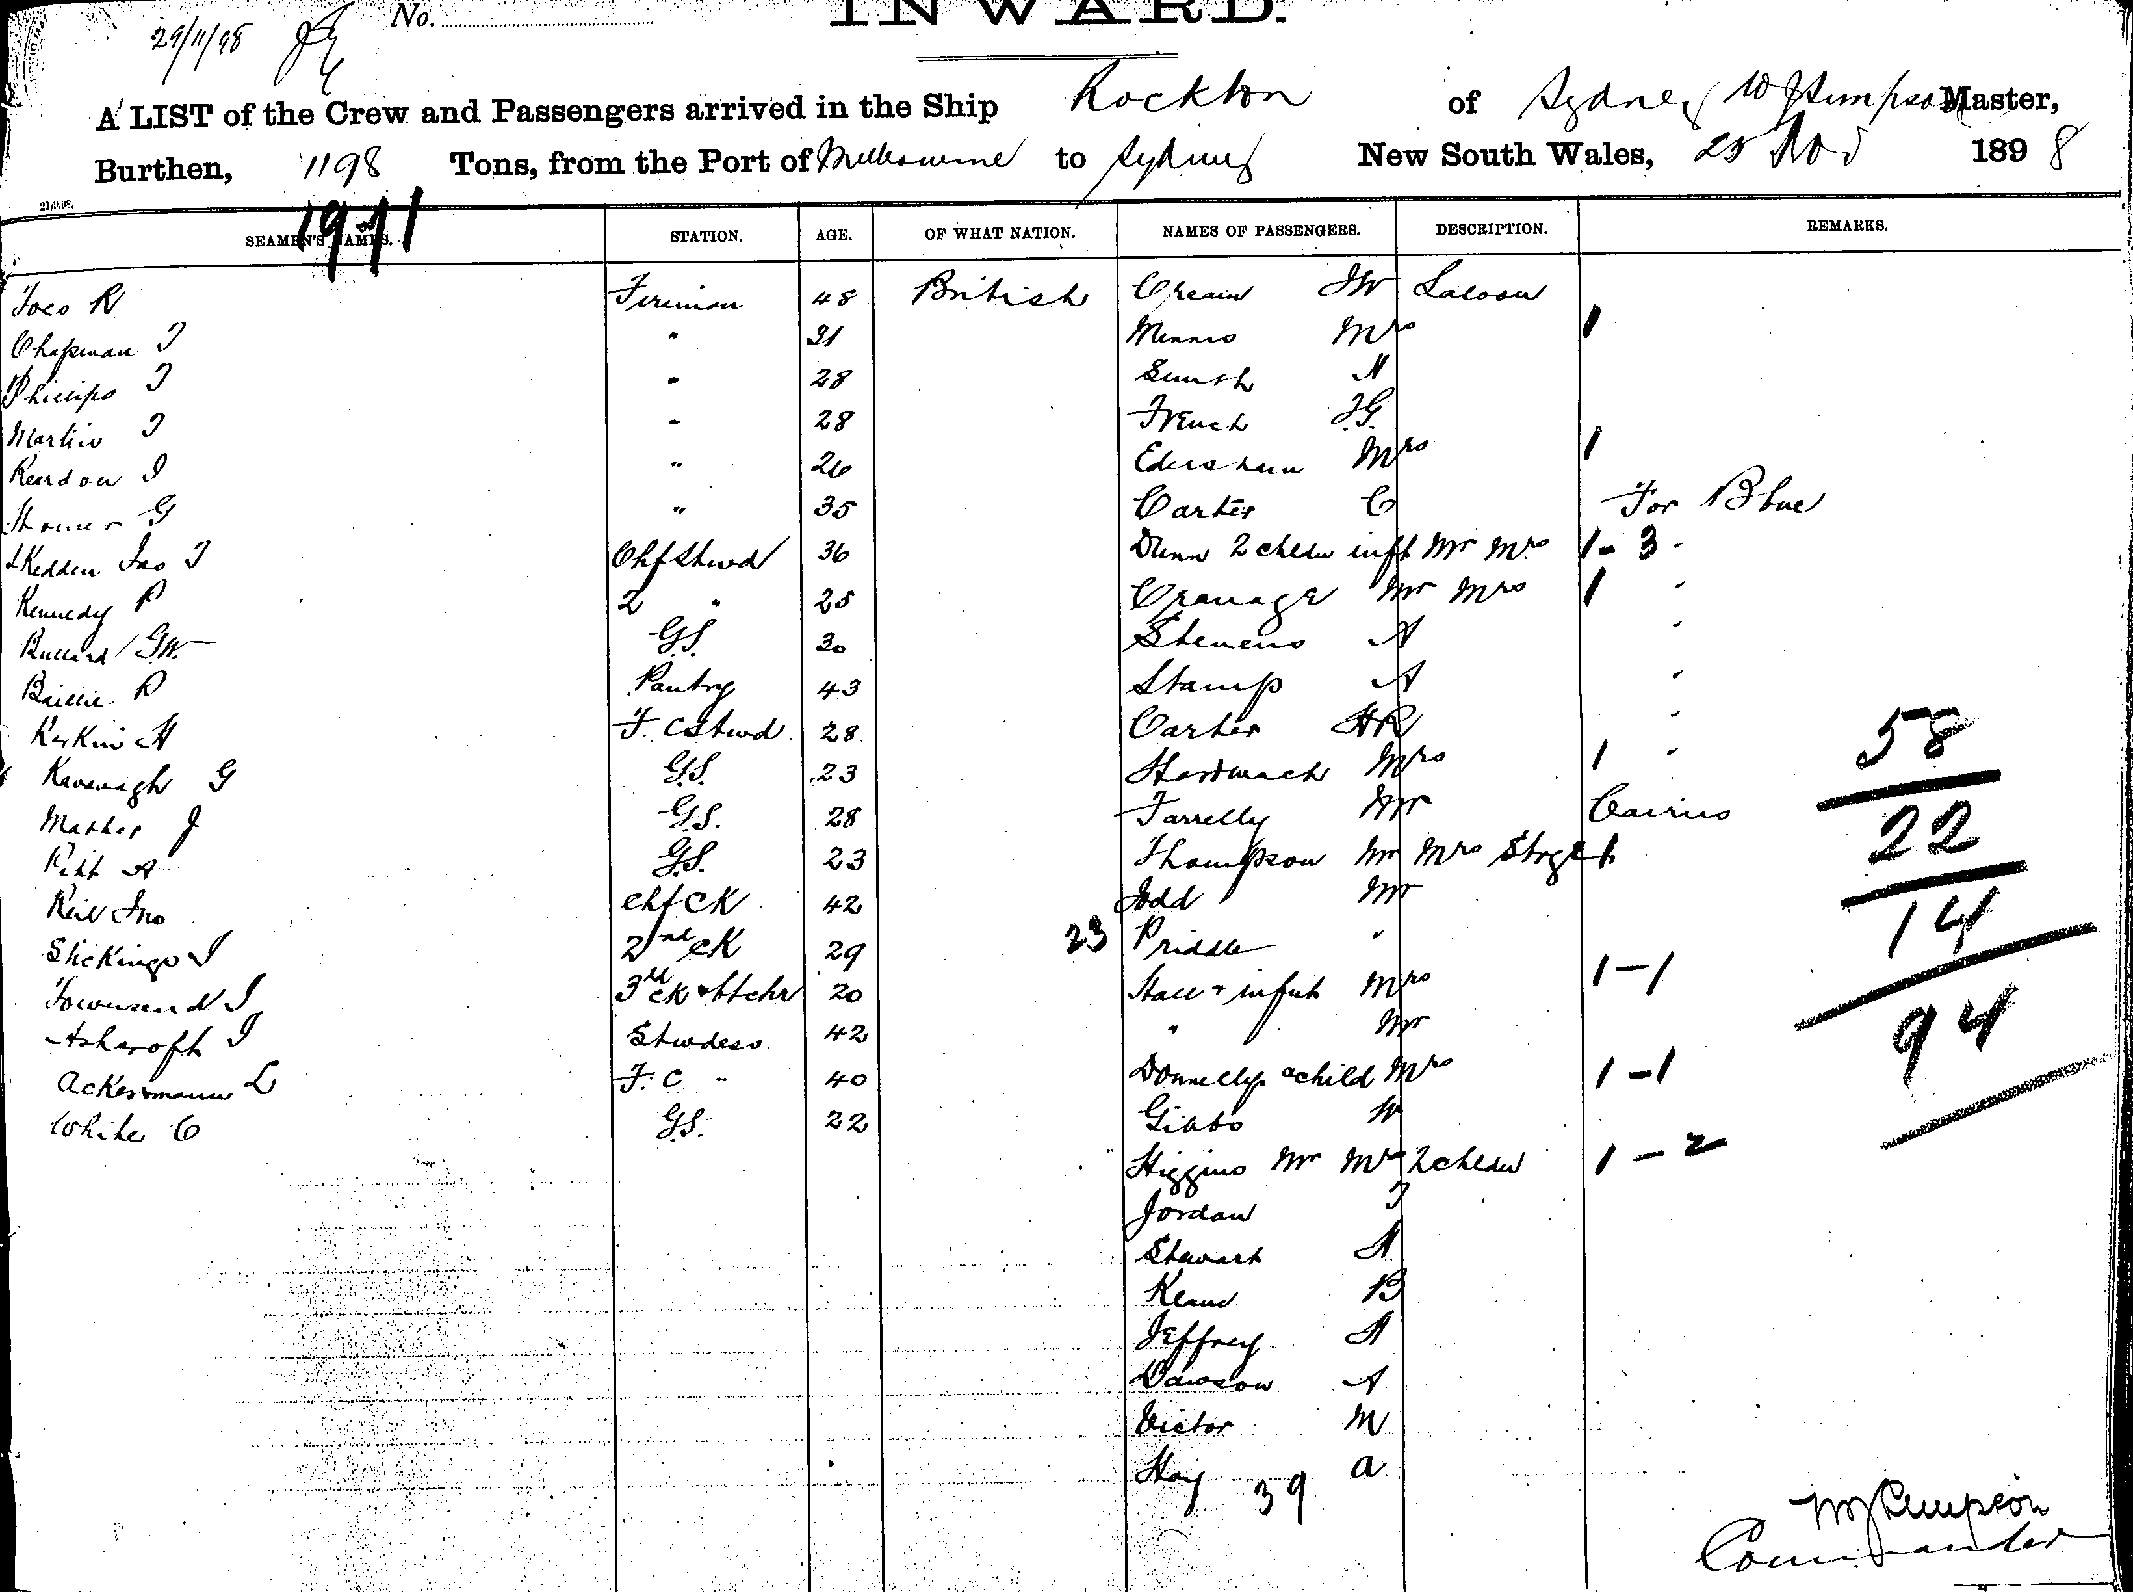 INWARD.
29/11/98 No.
A LIST of the Crew and Passengers arrived in the Ship Rockton of Sydney W J Simpson Master,
Burthen, 1198 Tons, from the Port of Melbourne to Sydney New South Wales, 28 Nov 1898
1941
SEAMEN'S NAMES. STATION. AGE. OF WHAT NATION. NAMES OF PASSENGERS. DESCRIPTION. REMARKS.
R Fireman 48 British JW Saloon
Chapman T " 31 Mrs 1
Phillips T " 28 H
Martin T " 28 French F.G.
Reardon J " 26 Mrs 1
G " 35 Carter C For Blue
Skedden Jno T Chf Stwd 36 Dunn 2 childn inft Mr Mrs 1-3 "
Kennedy P 2 " 25 Cranage Mr Mrs 1 "
Bullard G.W. G.S. 30 Stevens A "
Baillie R Pantry 43 Stamp A "
H F. C Stwd 28 Carter HR "
Kavanagh G G.S. 23 Mrs 1 "
Mather J G.S. 28 Farrelly Mr Cairns
Pitt A G.S. 23 Thompson Mr Mrs Strge 1
Reil Jno chf CK 42 Todd Mr
Stickings J 2nd CK 29 23 Priddle "
Townsend J 3rd CK & Btchr 20 Hall & infnt Mrs 1-1
Ashcroft J Stwdess 42 " Mr
Ackermann L F. C " 40 Donnelly & child Mrs 1-1
White C G.S. 22 Gibbs W
Higgins Mr Mrs 2 childn 1-2
Jordan T
Stewart H
B
Jeffrey H
Dawson A
Victor M
Hay A
39
58
22
14
94
W J Simpson
Commander